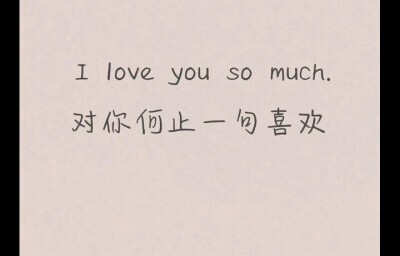 I love you so much.
对你何止一句喜欢